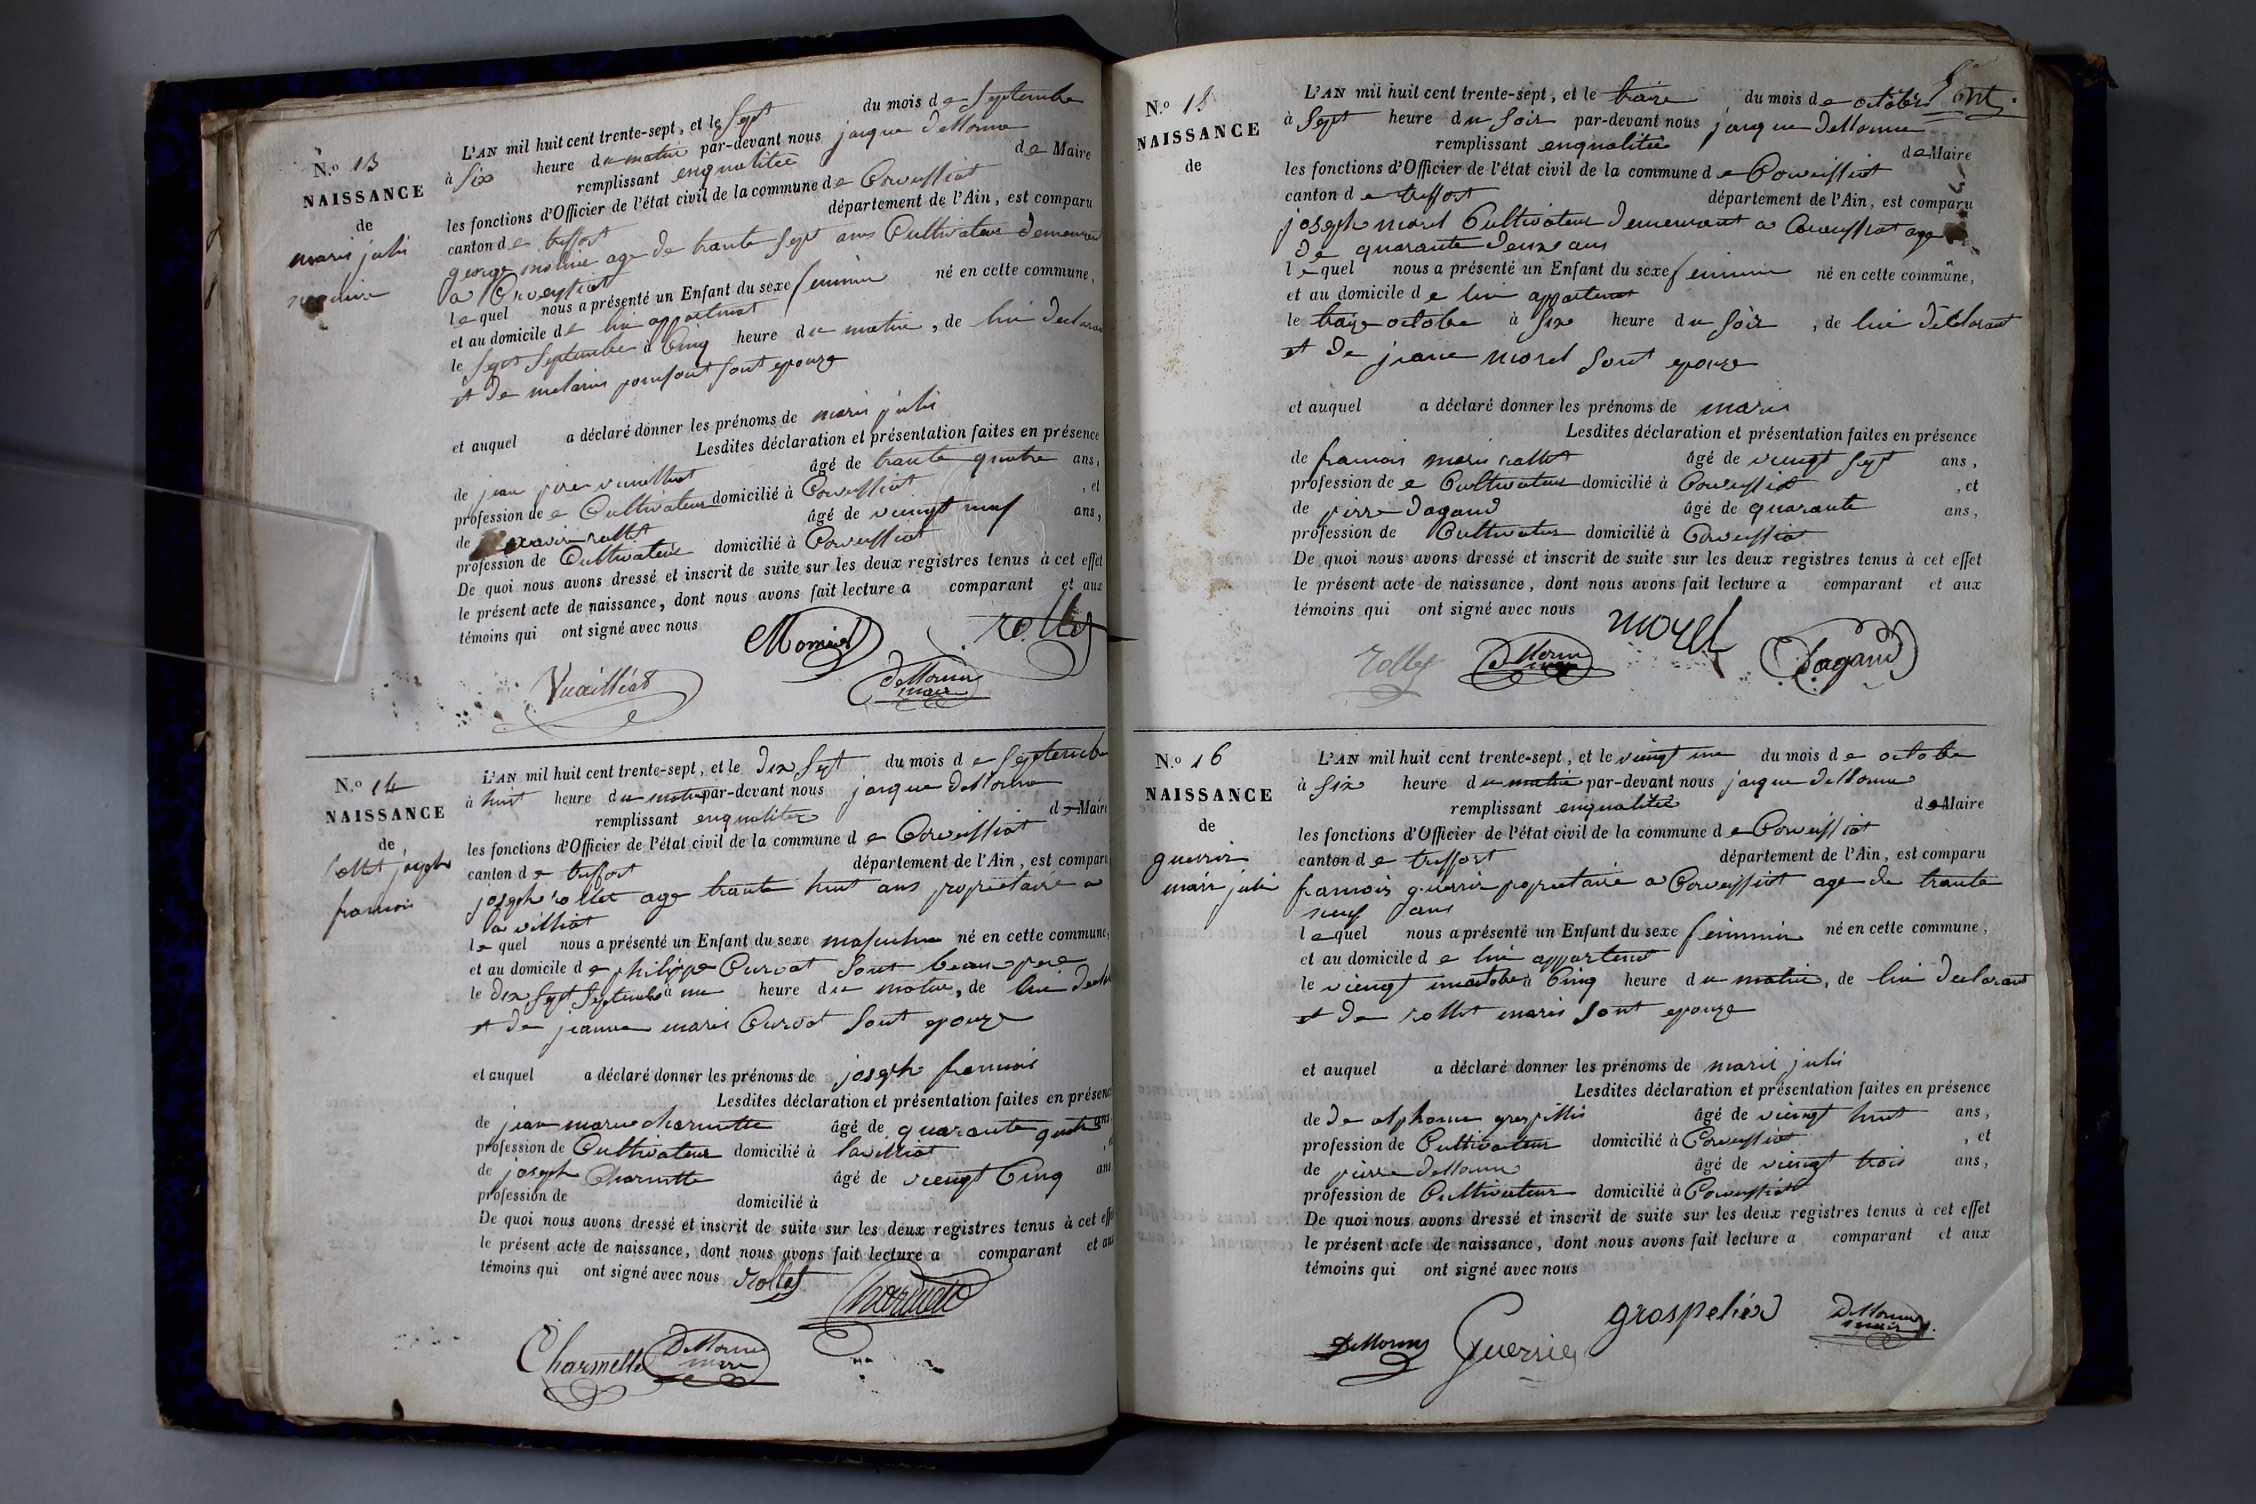 N.o 13
NAISSANCE
de
marie julie
L'AN mil huit cent trente-sept, et le Sept du mois de Septembre
à Six heure du matin par-devant nous jacque deMorme
remplissant enqualitée de Maire
les fonctions d'Officier de l'état civil de la commune de Corveissiat
canton de treffort département de l'Ain, est comparu
george age de trante Sept ans Cultivateur demeurant
a Corveissiat
lequel nous a présenté un Enfant du sexe feminin né en cette commune,
et au domicile de lui appartenant
le Sept Septembre à Cinq heure du matin, de lui declarant
et de melanie sont epouze
et auquel a déclaré donner les prénoms de marie julie
Lesdites déclaration et présentation faites en présence
de jean âgé de trante quatre ans,
profession de Cultivateur domicilié à Corveissiat, et
de rollet âgé de viengt neuf ans,
profession de Cultivateur domicilié à Corveissiat
De quoi nous avons dressé et inscrit de suite sur les deux registres tenus à cet effet
le présent acte de naissance, dont nous avons fait lecture a comparant et aux
témoins qui ont signé avec nous
rollet
Vuailliat deMorme
maire
N.o 14
NAISSANCE
de
rollet joseph
francois
L'AN mil huit cent trente-sept, et le dix Sept du mois de Septembre
à huit heure du matin par-devant nous jacque deMorme
remplissant enqualitée de Maire
les fonctions d'Officier de l'état civil de la commune de Corveissiat
canton de treffort département de l'Ain, est comparu
joseph rollet age trante huit ans proprietaire a
lavilliat
lequel nous a présenté un Enfant du sexe masculin né en cette commune,
et au domicile de philippe Curvat Sont beaux pere
le dix Sept Septembre à une heure du matin, de lui
et de jeanne marie Curvat Sont epouze
et auquel a déclaré donner les prénoms de joseph francois
Lesdites déclaration et présentation faites en présence
de jean marie charmette âgé de quarante quatre ans
profession de Cultivateur domicilié à lavilliat
de joseph Charmette âgé de viengt Cinq ans
profession de domicilié à
De quoi nous avons dressé et inscrit de suite sur les deux registres tenus à cet effet
le présent acte de naissance, dont nous avons fait lecture a comparant et aux
témoins qui ont signé avec nous rollet Charmette
Charmette DeMorme
maire
N.o 15
NAISSANCE
de
L'AN mil huit cent trente-sept, et le traize du mois de octobre
à Sept heure du Soir par-devant nous jacque deMorme
remplissant enqualitée de Maire
les fonctions d'Officier de l'état civil de la commune de Corveissiat
canton de treffort département de l'Ain, est comparu
joseph morel Cultivateur demeurant a Corveissiat age
de quarante deux ans
lequel nous a présenté un Enfant du sexe feminin né en cette commune,
et au domicile de lui appartenant
le traize octobre à Six heure du Soir, de lui déclarant
et de jeane morel Sont epouze
et auquel a déclaré donner les prénoms de marie
Lesdites déclaration et présentation faites en présence
de francois marie rollet âgé de viengt Sept ans,
profession de Cultivateur domicilié à Corveissiat, et
de pierre dagand âgé de quarante ans,
profession de Cultivateur domicilié à Corveissiat
De quoi nous avons dressé et inscrit de suite sur les deux registres tenus à cet effet
le présent acte de naissance, dont nous avons fait lecture a comparant et aux
témoins qui ont signé avec nous morel
rollet deMorme dagand
maire
N.o 16
NAISSANCE
de
guerrin
marie julie
L'AN mil huit cent trente-sept, et le viengt un du mois de octobre
à Six heure du matin par-devant nous jacque deMorme
remplissant enqualitée de Maire
les fonctions d'Officier de l'état civil de la commune de Corveissiat
canton de treffort département de l'Ain, est comparu
francois guerrin proprietaire a Corveissiat age de trante
neuf ans
lequel nous a présenté un Enfant du sexe feminin né en cette commune,
et au domicile de lui appartenent
le viengt un octobre à Cinq heure du matin, de lui declarant
et de rollet marie Sont epouze
et auquel a déclaré donner les prénoms de marie julie
Lesdites déclaration et présentation faites en présence
de de alphonse âgé de viengt huit ans,
profession de Cultivateur domicilié à Corveissiat, et
de pierre deMorme âgé de viengt trois ans,
profession de Cultivateur domicilié à Corveissiat
De quoi nous avons dressé et inscrit de suite sur les deux registres tenus à cet effet
le présent acte de naissance, dont nous avons fait lecture a comparant et aux
témoins qui ont signé avec nous
grospelier DeMorme
maire
DeMorme Guerrin